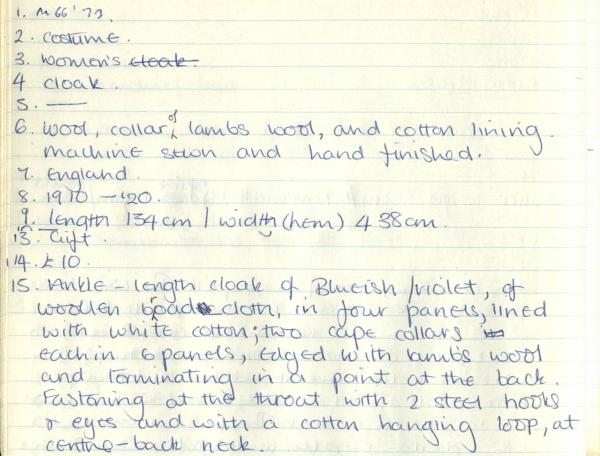 1. M66'73.
2. costume.
3. women's cloak.
4 cloak.
5. —
6. wool, collar of lambs wool, and cotton lining.
machine sewn and hand finished.
7. England.
8. 1910 - '20.
9. length 134cm / width (hem) 438cm.
13. Gift.
14. £10.
15. Ankle-length cloak of Blueish/violet, of
woollen broad cloth, in four panels, lined
with white cotton; two cape collars
each in 6 panels, edged with lambs wool
and terminating in a point at the back.
Fastening at the throat with 2 steel hooks
& eyes and with a cotton hanging loop, at
centre-back neck.